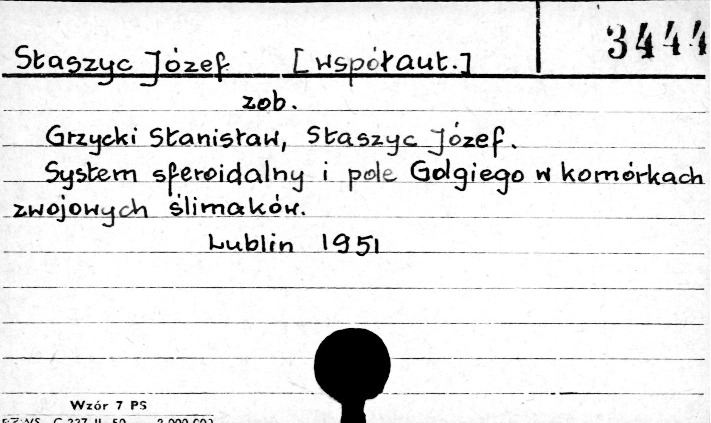 Staszyc Józef [współaut.] 3444
zob.
Grzycki Stanisław, Staszyc Józef.
System sferoidalny i pole Golgiego w komórkach
zwojowych ślimaków.
Lublin 1951
Wzór 7 PS